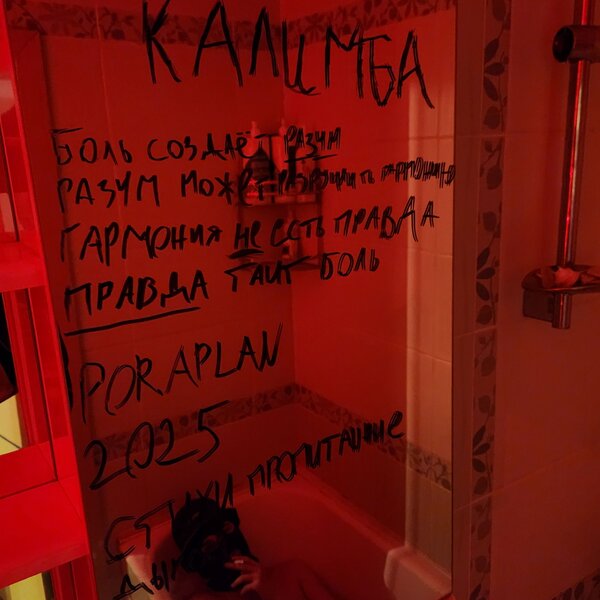 КАЛИМБА
БОЛЬ СОЗДАЁТ РАЗУМ
РАЗУМ МОЖЕТ РАЗРУШИТЬ ГАРМОНИЮ
ГАРМОНИЯ НЕ ЕСТЬ ПРАВДА
ПРАВДА ТАИТ БОЛЬ
PORAPLAN
2025
СТИХИ ПРОПИТАННЫЕ